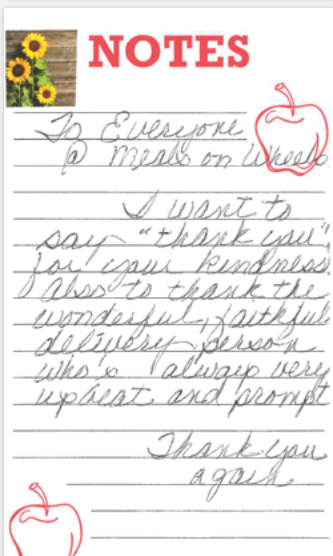 NOTES
To Everyone
@ Meals on Wheels
I want to
say "thank you"
for your kindness
also to thank the
wonderful, faithful
delivery person
who's always very
upbeat and prompt
Thank you
again